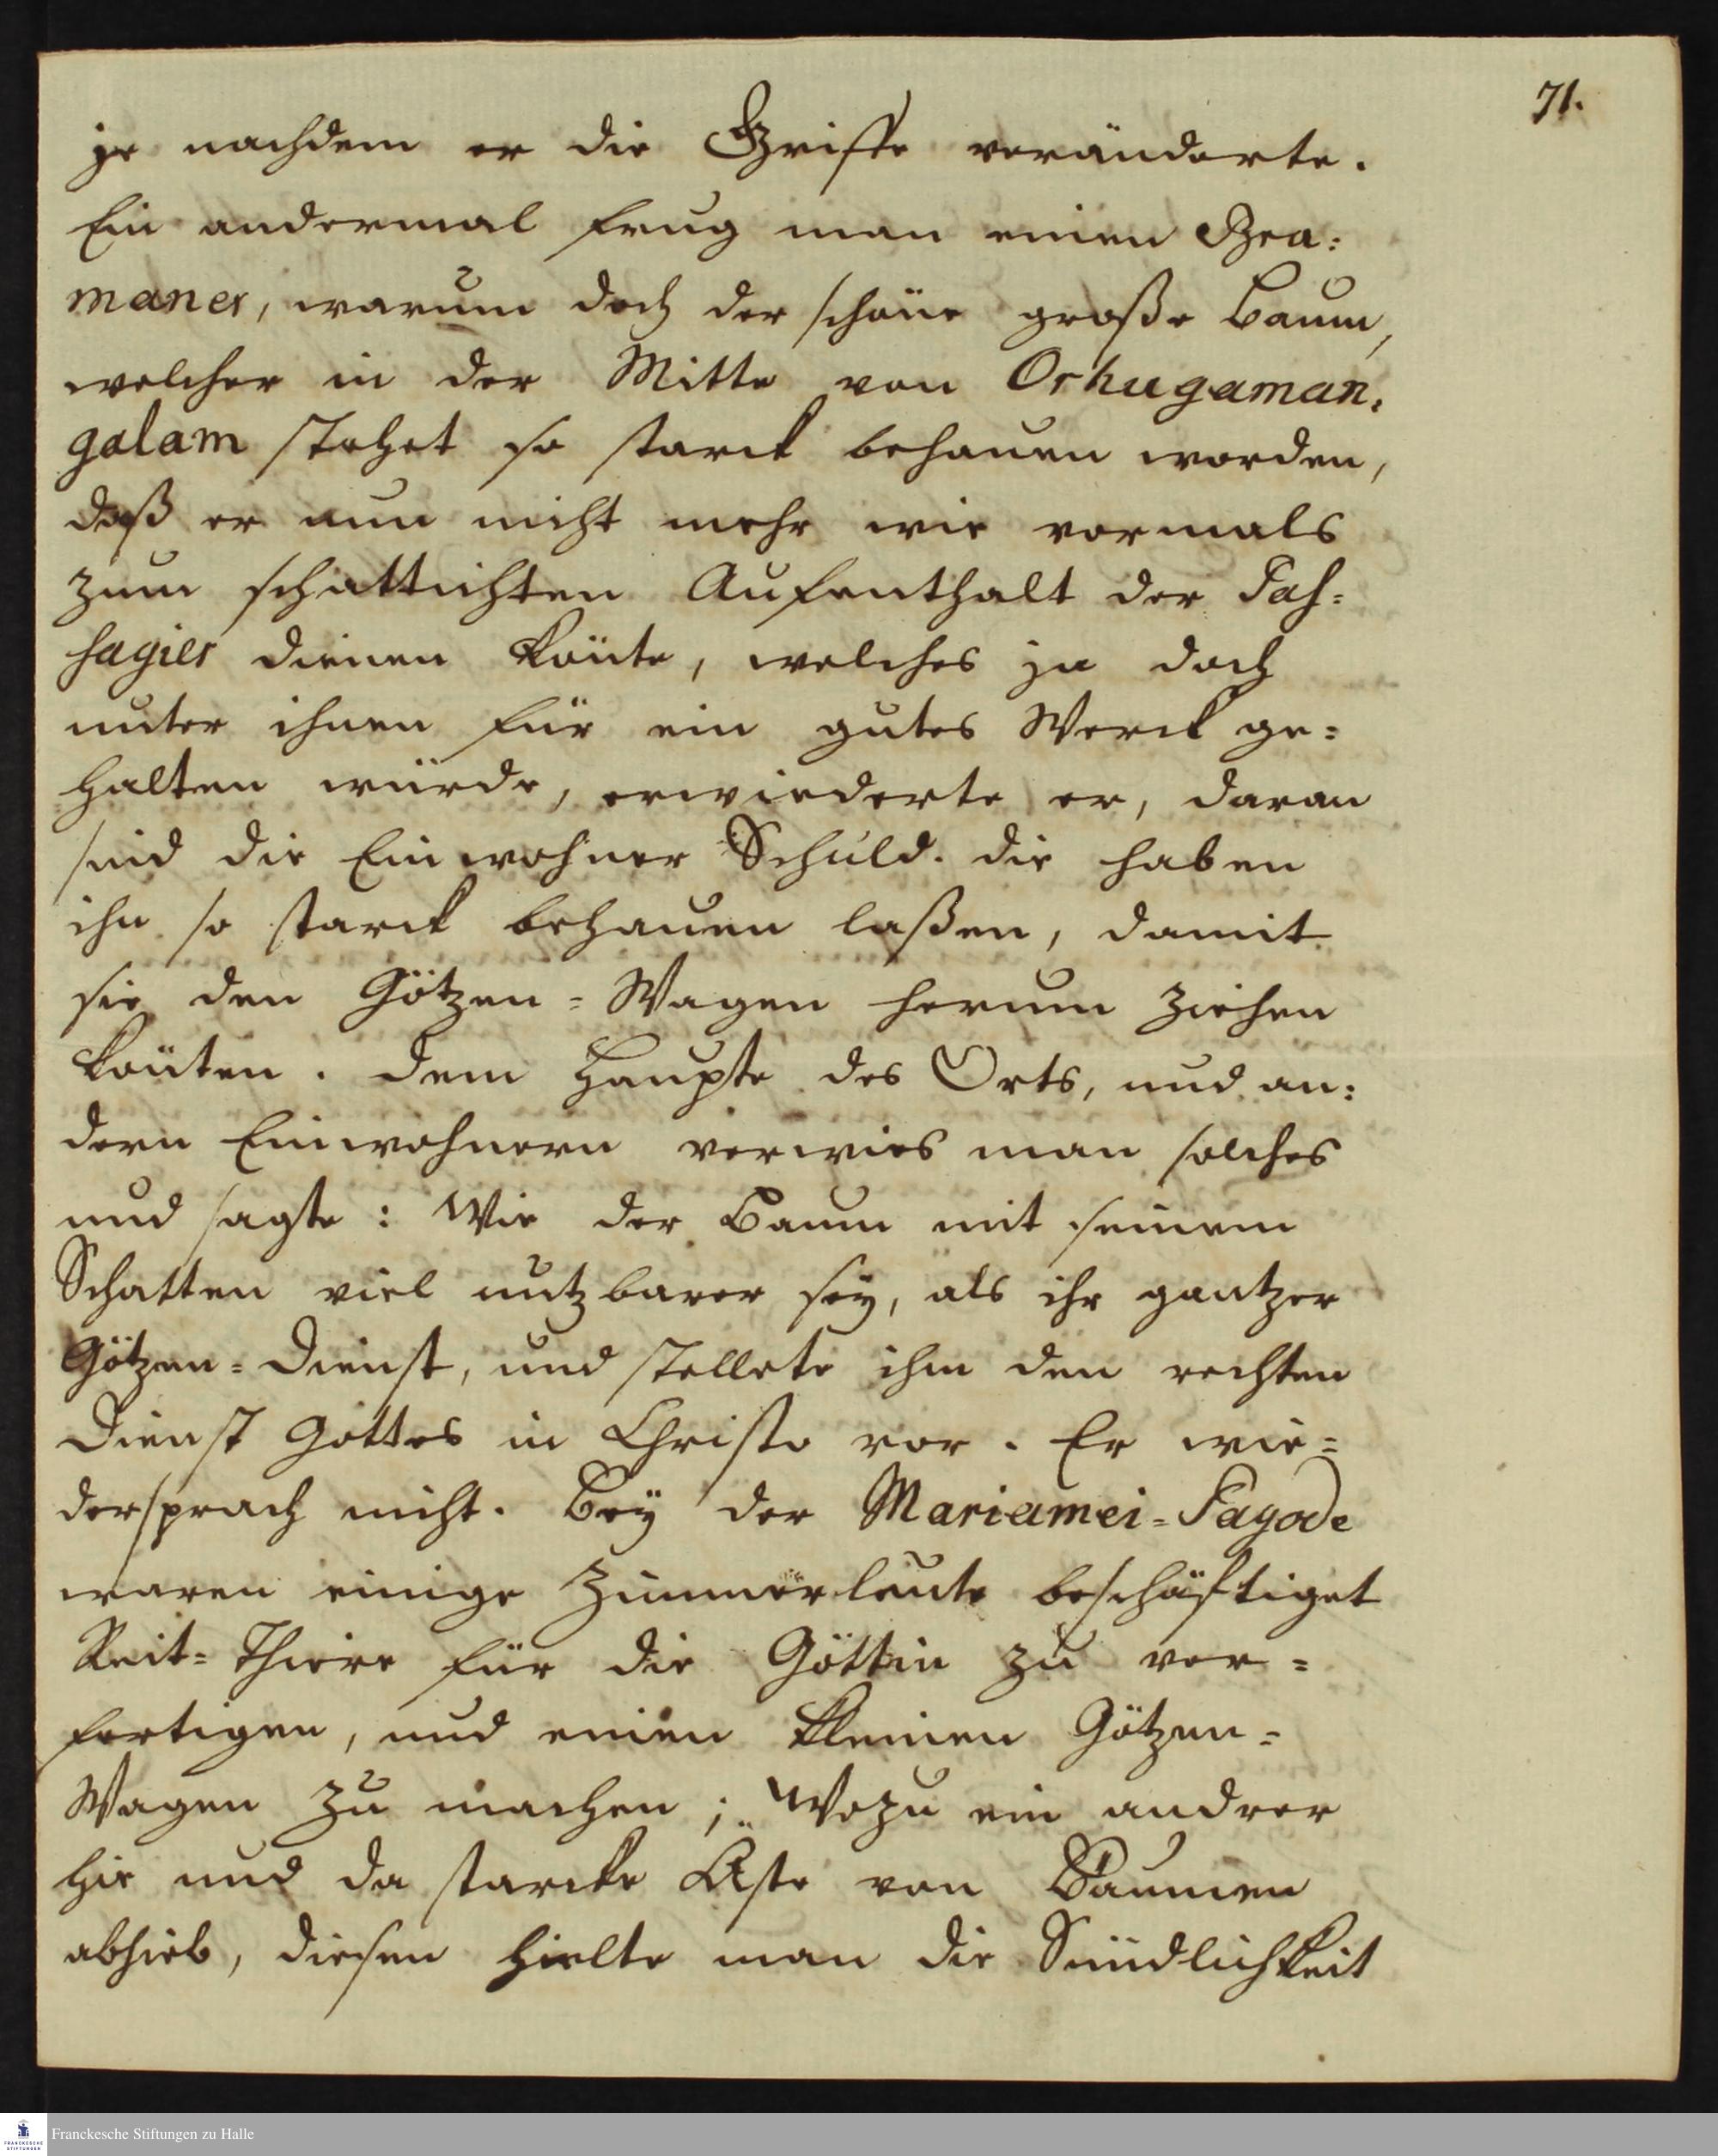 71.
je nachdem er die Griffe veränderte.
Ein andermal frug man einen Bra=
maner, warum doch der schöne große Baum,
welcher in der Mitte von Orhugaman=
galam stehet so starck behauen worden,
daß er nun nicht mehr wie vormals
zum schattichten Aufenthalt der Pas=
sagier dienen könte, welches ja doch
unter ihnen für ein gutes Werck ge=
halten würde, erwiederte er, daran
sind die Einwohner Schuld. die haben
ihn so starck behauen laßen, damit
sie den Götzen=Wagen herum ziehen
könten. Dem Haupte des Orts, und an=
dern Einwohnern verwies man solches
und sagte: Wie der Baum mit seinem
Schatten viel nutzbarer sey, als ihr gantzer
Götzen=Dienst, und stellete ihm den rechten
Dienst Gottes in Christo vor. Er wie=
dersprach nicht. Bey der Mariamei=Pagode
waren einige Zimmerleute beschäftiget
Reit=Thiere für die Göttin zu ver=
fertigen, und einen kleinen Götzen=
Wagen zu machen; Wozu ein andrer
hie und da starcke Äste von Bäumen
abhieb, diesen hielte man die Sündlichkeit
Franckesche Stiftungen zu Halle